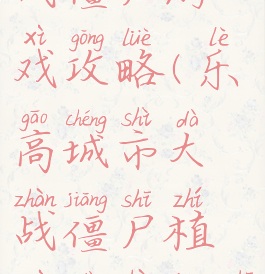 xì gōng lüè lè
戏攻略(乐
gāo chéng shì dà
高城市大
zhàn jiāng shī zhí
战僵尸植